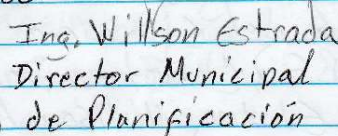 Ing. Willson Estrada
Director Municipal
de Planificación